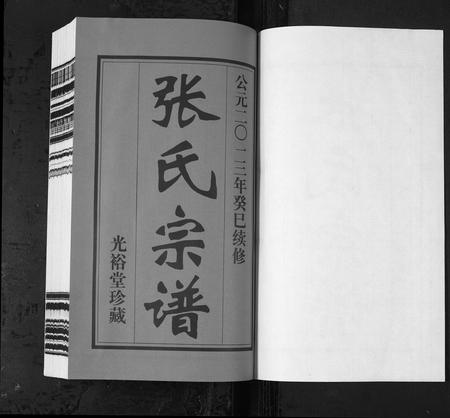 公元二〇一三年癸巳续修
张氏宗谱
光裕堂珍藏